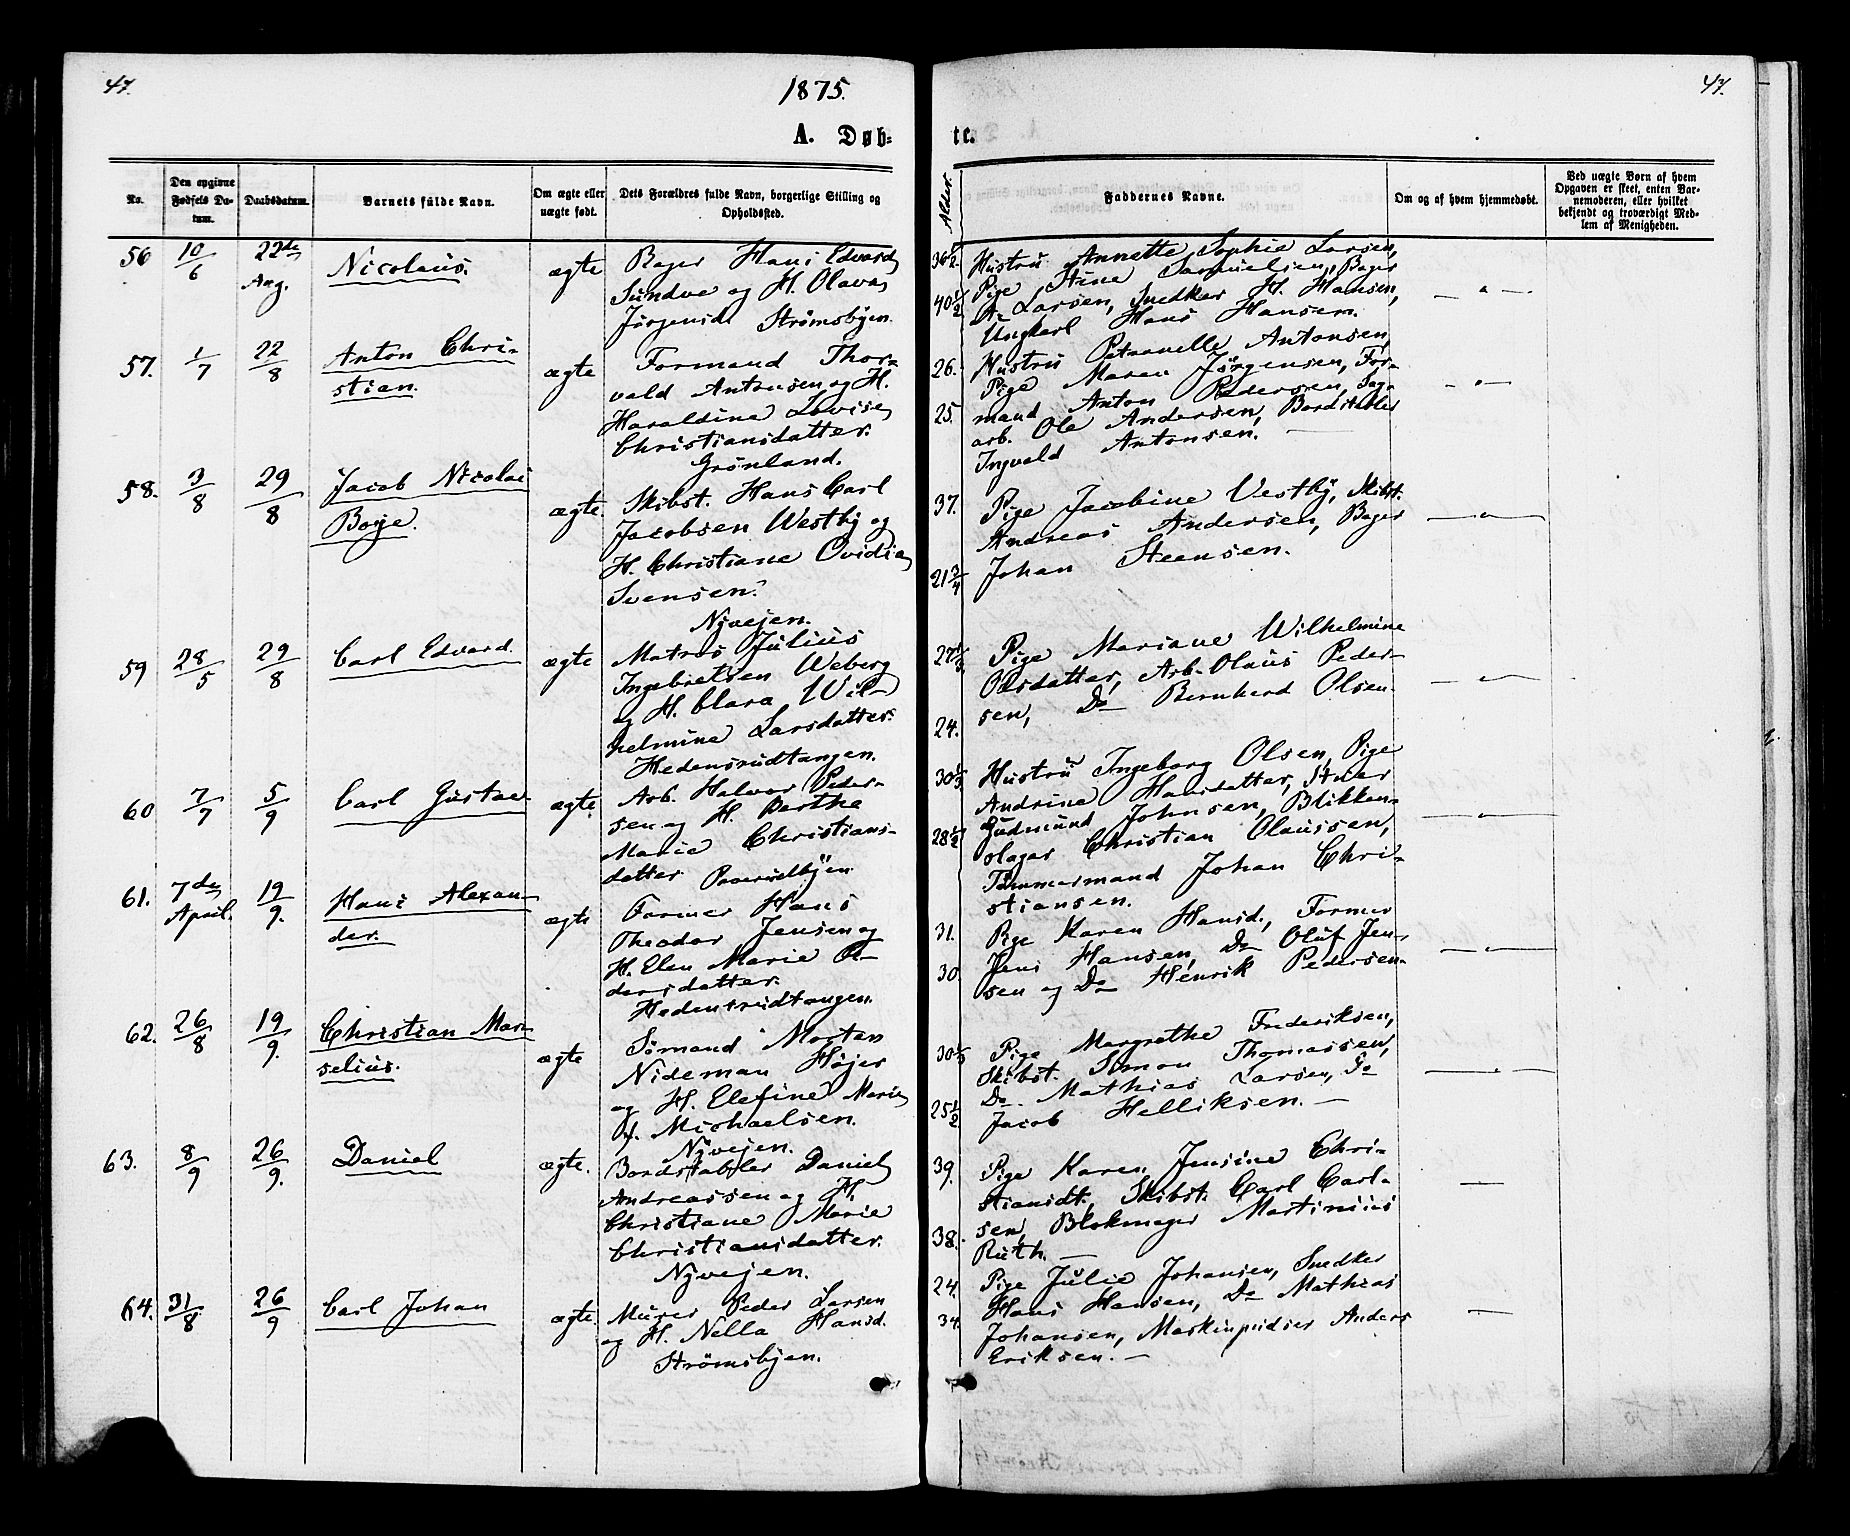 47.
1875.
A. Døb-
No.
Den opgivne Fødsels Datum.
Daabsdatum.
Barnets fulde Navn.
Om ægte eller uægte født.
Dets Forældres fulde Navn, borgerlige Stilling og Opholdssted.
56
10/6
22de Aug.
Nicolaus.
ægte
Bager Hans Edvard
Sundve og H. Olava
Jørgensd. Strømsbyen.
57.
1/7
22/8
Anton Chri-
stian.
ægte
Formand Thor-
vald Antonsen og H.
Haraldine Lovise
Christiansdatter.
Grønland.
58.
3/8
29/8
Jacob Nicolai
Borge.
ægte
Skibst. Hans Carl
Jacobsen Westby og
H. Christiane Ovidia
Svensen.
Nyvejen.
59
28/5
29/8
Carl Edvard.
ægte
Matros Julius
Ingebretsen Weberg
og H. Clara Wil-
helmine Larsdatter.
Hedensrudtangen.
60
7/7
5/9
Carl Gustav.
ægte
Arb. Halvor Peder-
sen og H. Berthe
Marie Christians-
datter
61.
7de April.
19/9.
Hans Alexan-
der.
ægte
Former Hans
Theodor Jensen og
H. Elen Marie A-
dersdatter.
Hedensrudtangen.
62.
26/8
19/9.
Christian Mar-
selius.
ægte
Sømand Morten
Nideman Højer
og H. Elefine Marie
J. Michaelsen.
Nyvejen.
63.
8/9
26/9.
Daniel
ægte.
Bordstabler Daniel
Andreassen og H.
Christiane Marie
Christiansdatter.
Nyvejen.
64.
31/8
26/9
Carl Johan
ægte
Murer Peder Larsen
og H. Nella Hansd.
Strømsbyen.
47.
te.
Alder.
Faddernes Navne.
Om og af hvem hjemmedøbt.
Ved uægte Børn af hvem
Opgaven er skeet, enten Bar-
nemoderen, eller hvilket
bekjendt og troværdigt Med-
lem af Menigheden.
36 1/2
40 1/2
Hustru Annette Sophie Larsen,
Pige Stine Samuelsen, Bager
A. Larsen, Snedker H. Hansen,
Ungkarl Hans Hansen.
26.
25.
Hustru Petronelle Antonsen,
Pige Maren Jørgensen, For-
mand Anton Pedersen, Sag-
arb. Ole Andersen, Bordstabler
Ingvald Antonsen.
37.
21 3/4
Pige Jacobine Vestby, Skibst.
Andreas Andersen, Bager
Johan Steensen.
27 1/3
24.
Pige Mariane Wilhelmine
Olsdatter, Arb. Olaus Peder-
sen, Do Bernhard Olsen.
30 1/3
28 1/2
Hustru Ingeborg Olsen, Pige
Andrine Hansdatter, Stuer
Gudmund Johnsen, Blikken-
slager Christian Olaussen,
Tømmermand Johan Chri-
stiansen.
31.
30
Pige Karen Hansd., Former
Jens Hansen, Do Oluf Jen-
sen og Do Henrik Pedersen.
30 1/3
25 1/2
Pige Margrethe Frederiksen,
Skibst. Simon Thomassen,
Do Mathias Larsen, Do
Jacob Helliksen.
39.
38.
Pige Karen Jensine Chri-
stiansdt., Skibst. Carl Carl-
sen, Blokmager Martinius
Ruth.
24.
34.
Pige Julie Johansen, Snedker
Hans Hansen, Do Mathias
Johansen, Maskinpudser Anders
Eriksen.